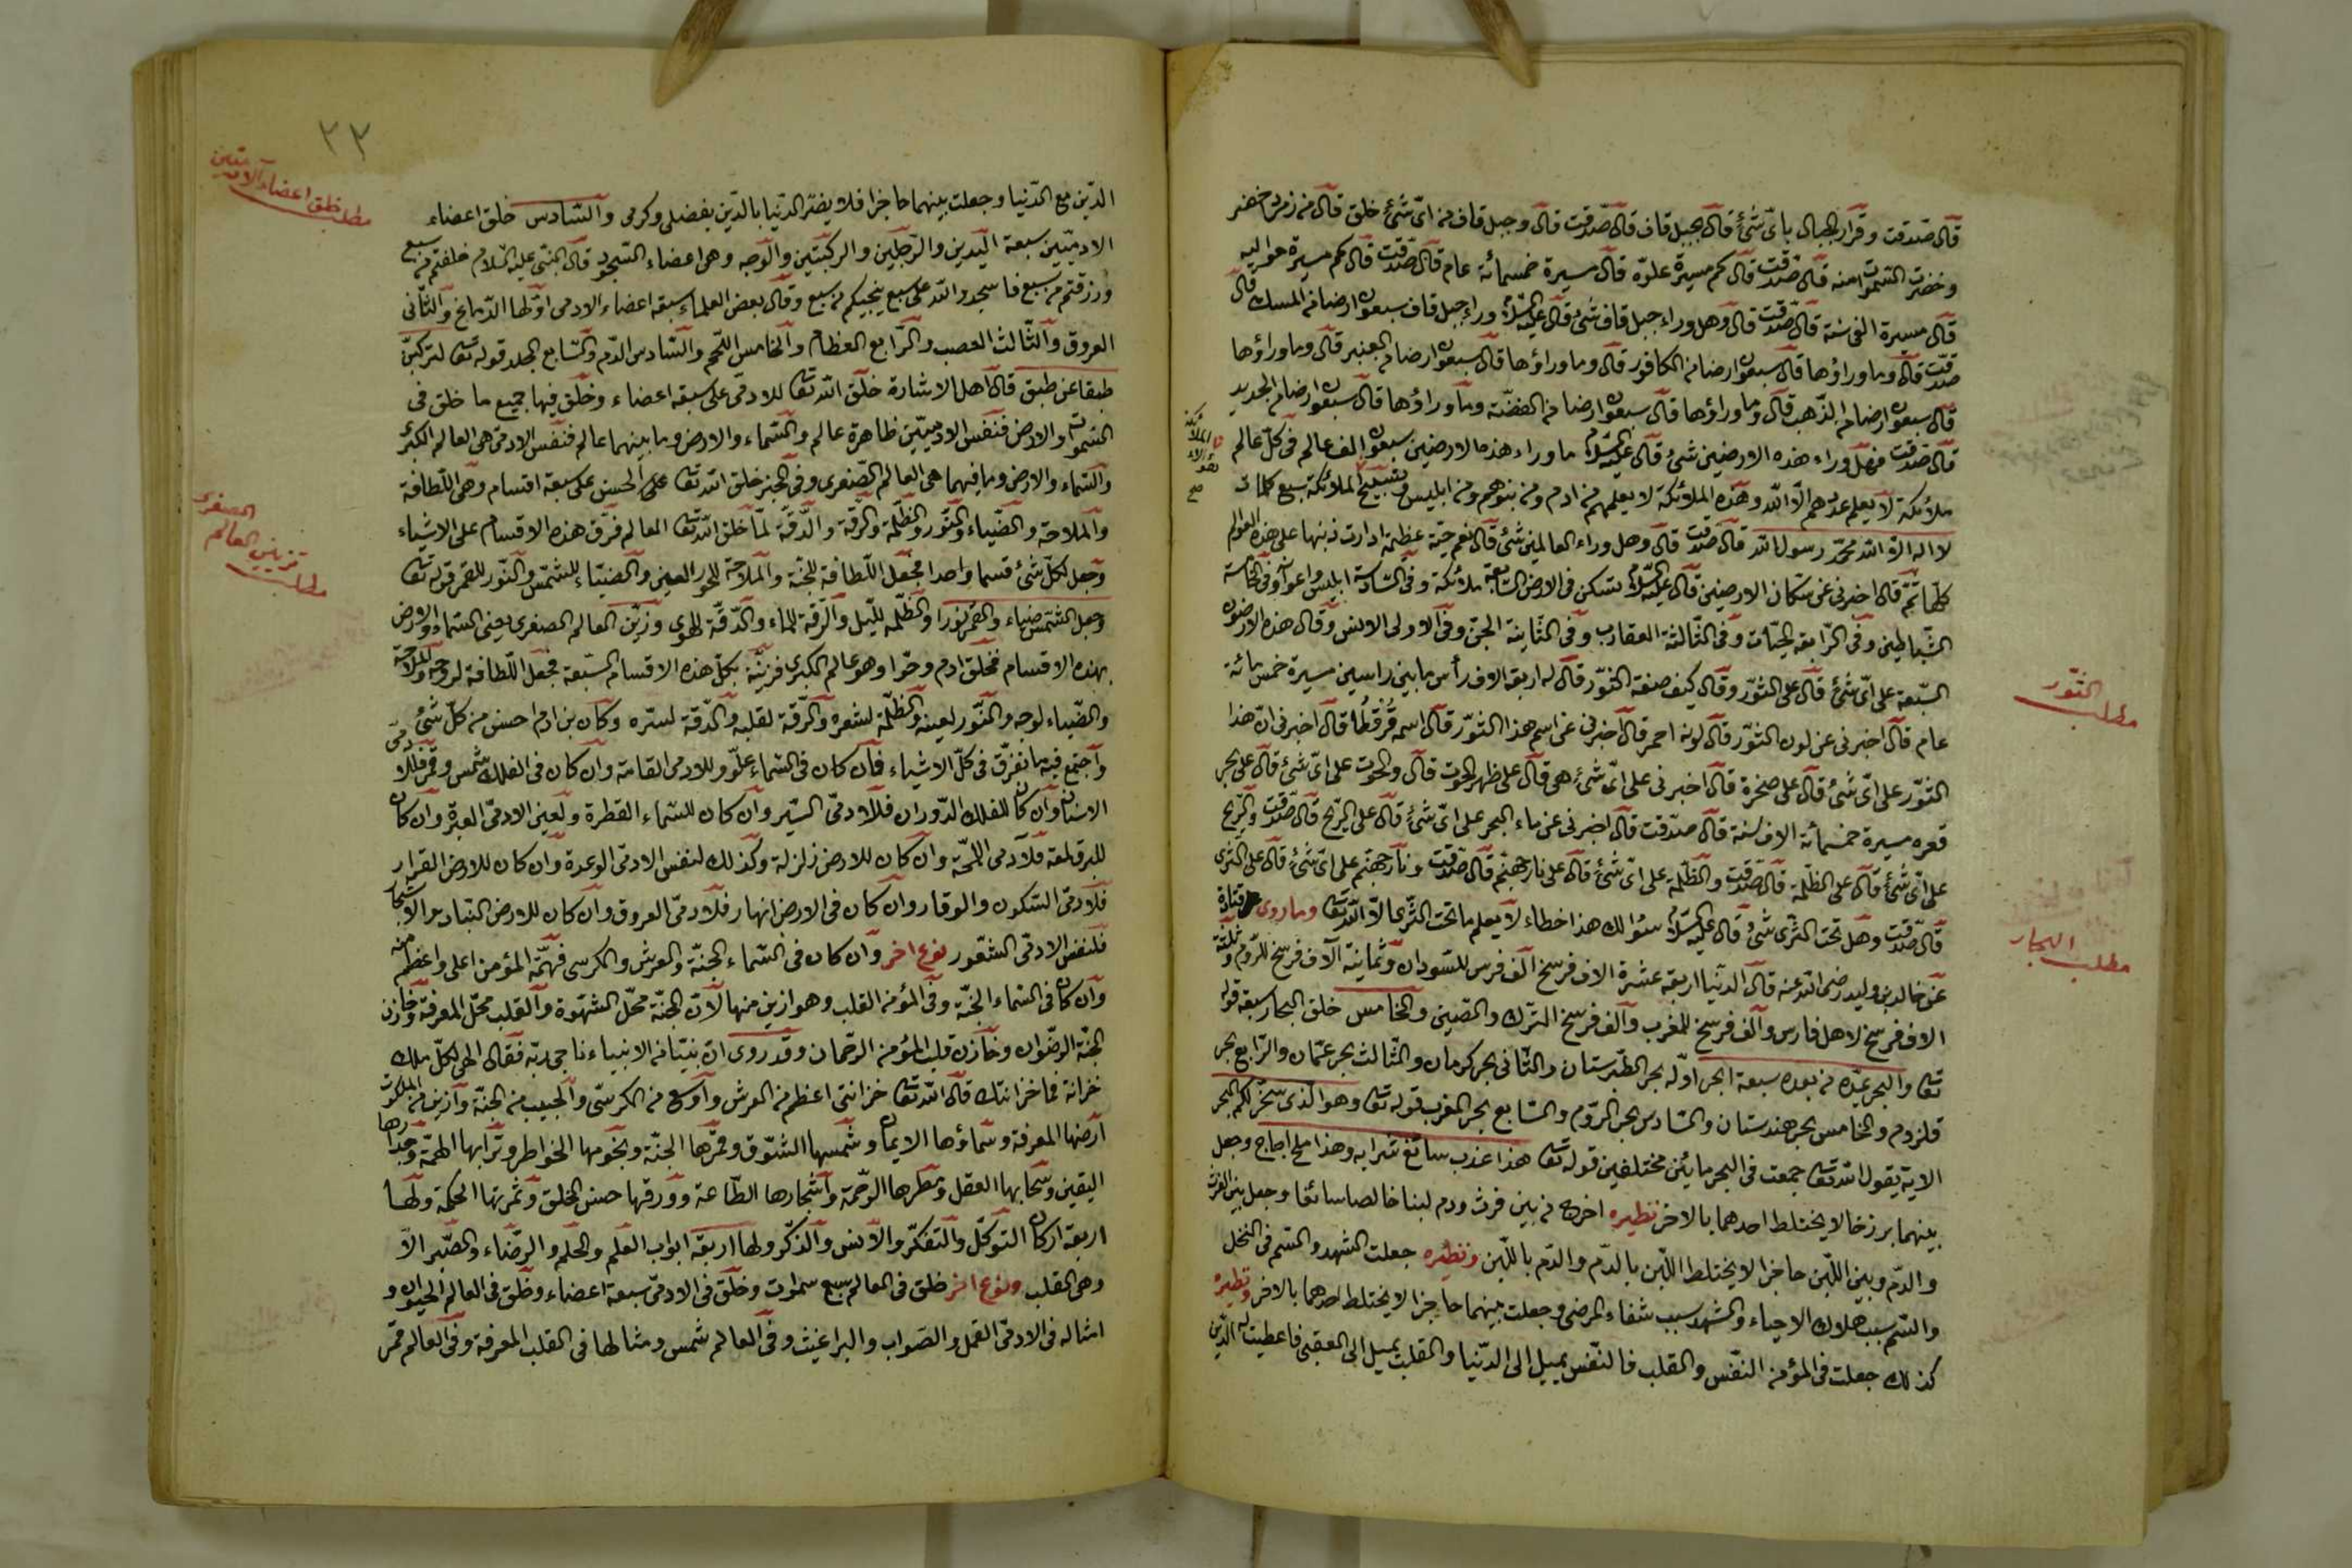 قال صدقت وقرار الجبال باى شئ قال بجبل قاف قال صدقت قال وجبل قاف من اى شئ خلق قال من زمرد خضر
وخضرت السموات منه قال صدقت قال كم مسيرة علوه قال مسيرة خمسمائة عام قال صدقت قال كم مسيرة حواليه
قال مسيرة الفى سنة قال صدقت قال وهل وراء جبل قاف شئ قال عليه السلام وراء جبل قاف سبعون ارضا من المسك قال
صدقت قال وما وراؤها قال سبعون ارضا من الكافور قال وما وراؤها قال سبعون ارضا من العنبر قال وما وراؤها
قال سبعون ارضا من الذهب قال وما وراؤها قال سبعون ارضا من الفضة وما وراؤها قال سبعون ارضا من الحديد
قال صدقت فهل وراء هذه الارضين شئ قال عليه السلام ما وراء هذه الارضين سبعون الف عالم فى كل عالم
ملائكة لا يعلم عددهم الا الله وهذه الملائكة لا يعلمهم من ادم ومن بنوهم ومن ابليس وتسبيح الملائكة سبع كلمات
لا اله الا الله محمد رسول الله قال صدقت قال وهل وراء العالمين شئ قال نعم حية عظيمة ادارت ذنبها على هذه العوالم
كلها ثم قال اخبرنى عن سكان الارضين قال عليه السلام تسكن فى الارض السابعة ملائكة وفى السادسة ابليس واعوانه وفى الخامسة
الشياطين وفى الرابعة الحيات وفى الثالثة العقارب وفى الثانية الجن وفى الاولى الانس وقال هذه الارضون
السبعة على اى شئ قال على الثور وقال كيف صفة الثور قال له اربعة الاف رأس ما بين راسين مسيرة خمس مائة
عام قال اخبرنى عن لون الثور قال لونه احمر قال اخبرنى عن اسم هذا الثور قال اسمه قال اخبرنى ان هذا
الثور على اى شئ قال على صخرة قال اخبرنى على اى شئ هى قال على ظهر الحوت قال والحوت على اى شئ قال على بحر
قعره مسيرة خمسمائة الاف سنة قال صدقت قال اخبرنى عن ماء البحر على اى شئ قال على الريح قال صدقت والريح
على اى شئ قال على الظلمة قال صدقت والظلمة على اى شئ قال على نار جهنم قال صدقت ونار جهنم على اى شئ قال على الثرى
قال صدقت وهل تحت الثرى شئ قال عليه السلام سؤالك هذا خطاء لا يعلم ما تحت الثرى الا الله تعا وما روى قتادة
عن خالد بن وليد رضى الله عنه قال الدنيا اربعة عشرة الاف فرسخ الف فرس للسودان وثمانية آلاف فرسخ للروم وثلثة
الاف فرسخ لاهل فارس والف فرسخ للمغرب والف فرسخ الترك والصين والخامس خلق البحار سبعة قوله
تعا والبحر يمده من بعده سبعة ابحر اوله بحر الطبرستان والثانى بحر كرمان والثالث بحر عمان والرابع بحر
قلزدم والخامس بحر هندستان والسادس بحر الروم والسابع بحر المغرب قوله تعا وهو الذى سخر لكم البحر
الاية يقول الله تعا جمعت فى البحر مائين مختلفين قوله تعا هذا عذب سائغ شرابه وهذا ملح اجاج وجعل
بينهما برزخا لا يختلط احدهما بالاخر نظيره اخرج من بين فرث ودم لبنا خالصا سائغا وجعل بين الفرث
والدم وبين اللبن حاجزا لا يختلط اللبن بالدم والدم باللبن ونظيره جعلت الشهد والسم فى النحل
والسم سبب هلاك الاحياء والشهد سبب شفاء المرضى وجعلت بينهما حاجزا لا يختلط احدهما بالاخر ونظيره
كذلك جعلت فى المؤمن النفس والقلب فالنفس يميل الى الدنيا والقلب يميل الى العقبى فاعطيت له الدين
مطلب الثور
مطلب البحار
٣٣
الدين مع الدنيا وجعلت بينهما حاجزا فلا يضر الدنيا بالدين بفضلى وكرمى والسادس خلق اعضاء
الادميين سبعة اليدين والرجلين والركبتين والوجه وهى اعضاء السجود قال النبى عليه السلام خلقتم من سبع
ورزقتم من سبع فاسجدوا لله على سبع ينجيكم من سبع وقال بعض العلماء سبعة اعضاء الادمى اولها الدماغ والثانى
العروق والثالث العصب والرابع العظام والخامس اللحم والسادس الدم والسابع الجلد قوله تعا لتركبن
طبقا عن طبق قال اهل الاشارة خلق الله تعا للادمى على سبعة اعضاء وخلق فيها جميع ما خلق فى
السموات والارض فنفس الادميين ظاهرة عالم والسماء والارض وما بينهما عالم فنفس الادمى هى العالم الكبرى
والسماء والارض وما فيهما هى العالم الصغرى وفى الخبر خلق الله تعا على الحسن على سبعة اقسام وهى اللطافة
والملاحة والضياء والنور والظلمة والرقة والدقة لما خلق الله تعا العالم فرق هذه الاقسام على الاشياء
وجعل لكل شئ قسما واحدا فجعل اللطافة للجنة والملاحة للحور العين والضياء للشمس والنور للقمر قوله تعا
وجعل الشمس ضياء والقمر نورا والظلمة لليل والرقة للماء والدقة للهوى وزين العالم الصغرى يعنى السماء والارض
بهذه الاقسام فخلق ادم وحوا وهو عالم الكبرى فزينه بكل هذه الاقسام السبعة فجعل اللطافة لروحه والملاحة
والضياء لوجه والنور لعينه والظلمة لشعره والرقة لقلبه والدقة لسره وكان بن ادم احسن من كل شئ
واجتمع فيه ما تفرق فى كل الاشياء فان كان فى السماء علو وللادمى القامة وان كان فى الفلك شمس وقمر فللادمى
وان كان للفلك الدوران فللادمى السير وان كان للسماء القطرة ولعين الادمى العبرة وان كان
للبرق لمعة فلادمى اللمحة وان كان للارض زلزلة وكذلك لنفس الادمى الوعدة وان كان للارض القرار
فلادمى السكون والوقار وان كان فى الارض انهار فلادمى العروق وان كان للارض النبات والاشجار
فلنفس الادمى الشعور نوع اخر وان كان فى السماء الجنة والعرش والكرسى فهمة المؤمن اعلى واعظم منه
وان كان فى السماء الجنة وفى المؤمن القلب وهو ازين منها لان الجنة محل الشهوة والقلب محل المعرفة وخازن
الجنة الرضوان وخازن قلب المؤمن الرحمان وقد روى ان نبيا من الانبياء ناجى ربه فقال الهى لكل ملك
خزانة فما خزانتك قال الله تعا خزانتى اعظم من العرش واوسع من الكرسى واطيب من الجنة وازين من الملكوت
ارضها المعرفة وسماؤها الايمان وشمسها الشوق وقمرها الجنة ونجومها الخواطر وترابها الهمة وجدارها
اليقين وسحابها العقل ومطرها الرحمة واشجارها الطاعة وورقها حسن الخلق وثمرتها الحكمة ولها
اربعة اركان التوكل والتفكر والانس والذكر ولها اربعة ابواب العلم والحلم والرضاء والصبر الا
وهى القلب ونوع اخر خلق فى العالم سبع سموات وخلق فى الادمى سبعة اعضاء وخلق فى العالم الحيوان و
امثاله فى الادمى القمل والصواب والبراغيث وفى العالم شمس ومثالها فى القلب المعرفة وفى العالم قمر
مطلب خلق اعضاء الادميين
مطلب تزيين العالم الصغرى